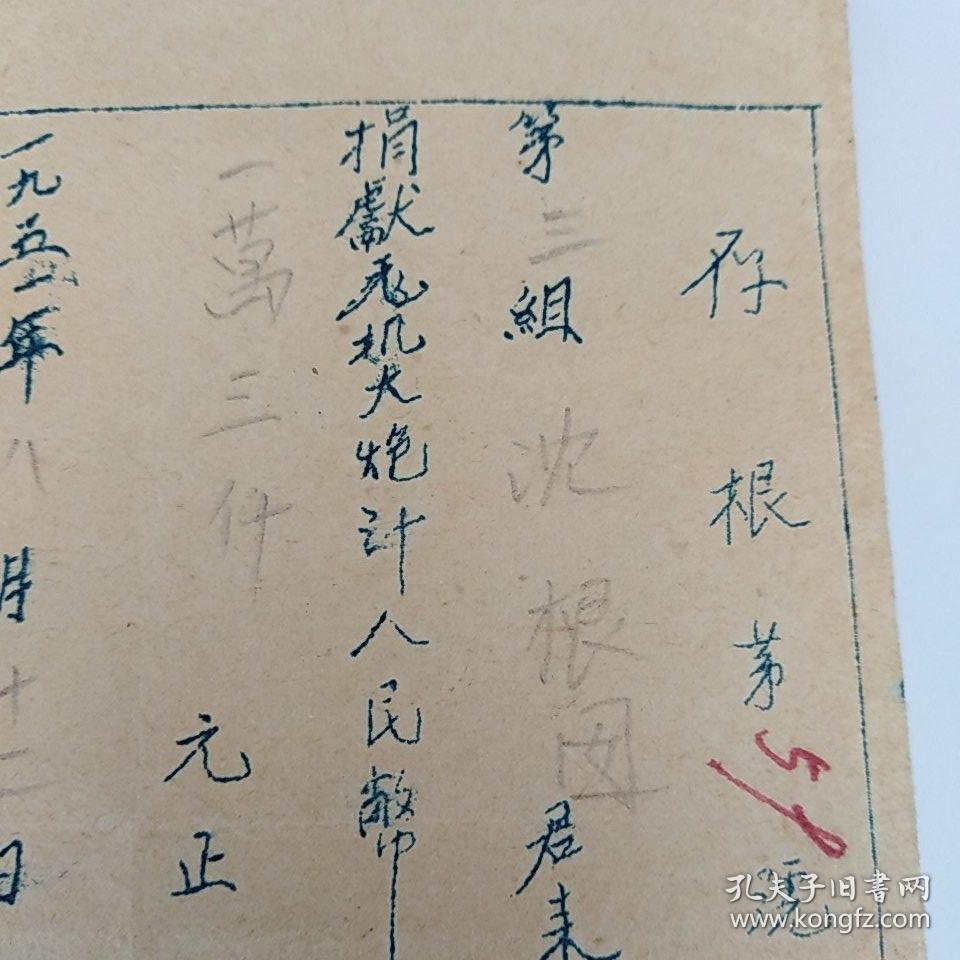 存根第58號
第三组沈根囡君来
捐獻飞机大炮计人民幣
一萬三仟元正
一九五一年八月十二日
孔夫子旧書网
www.kongfz.com